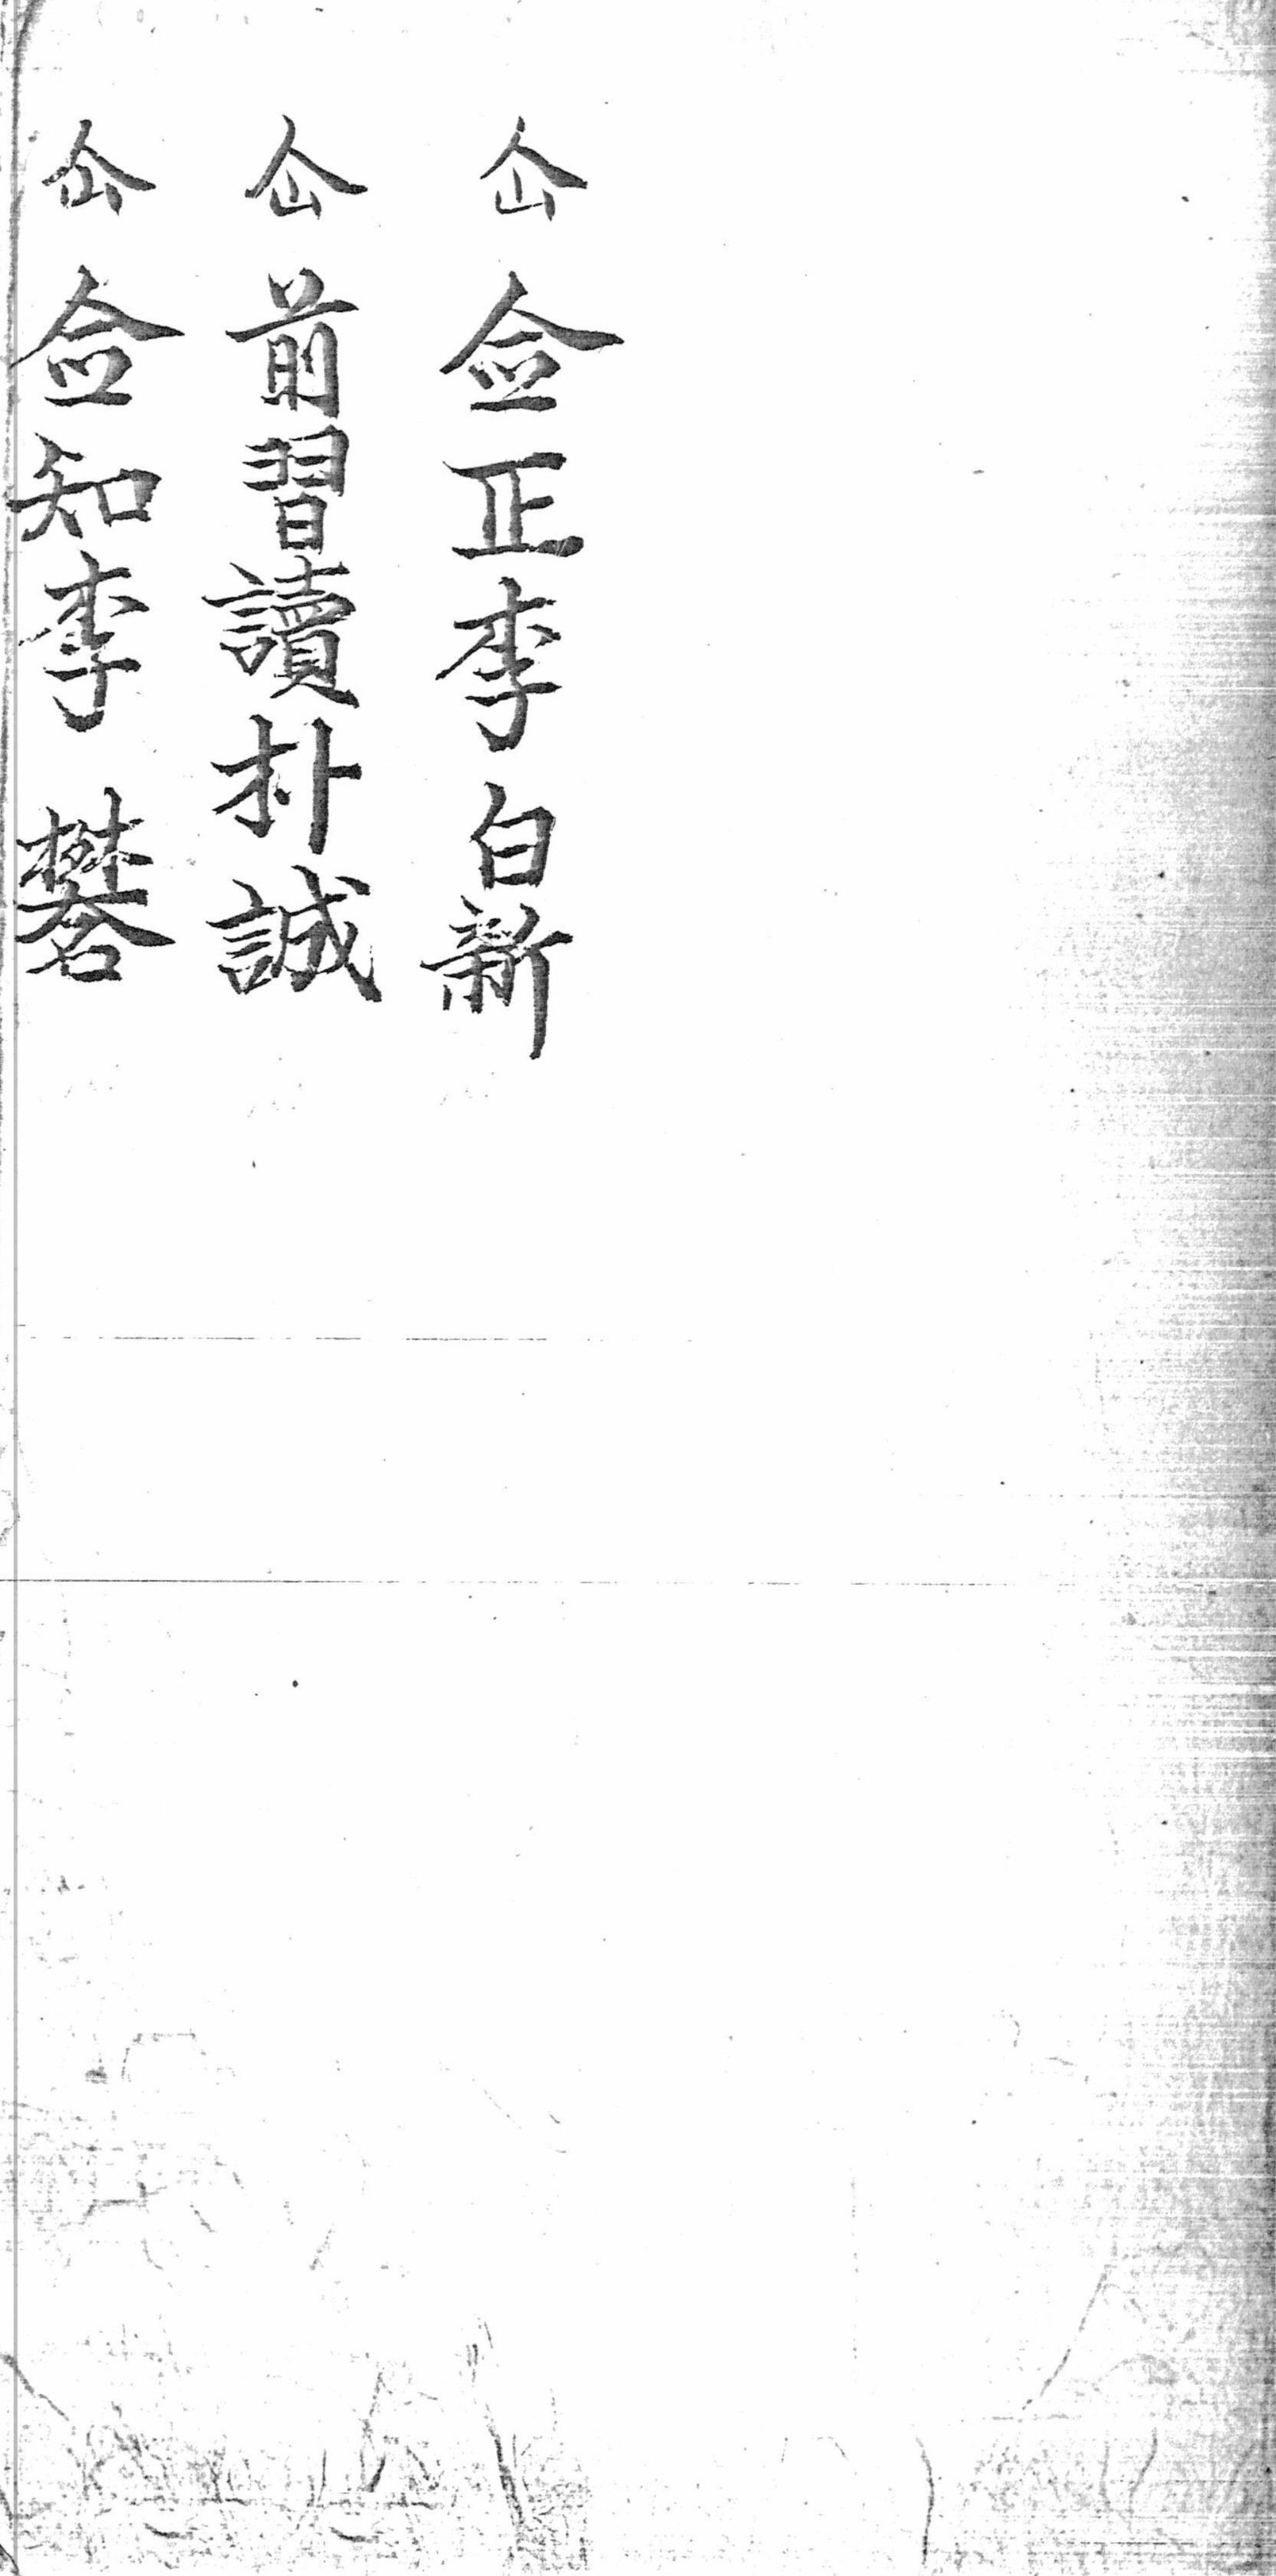 仚 僉正李白新
仚 前習讀朴誠
仚 僉知李礬